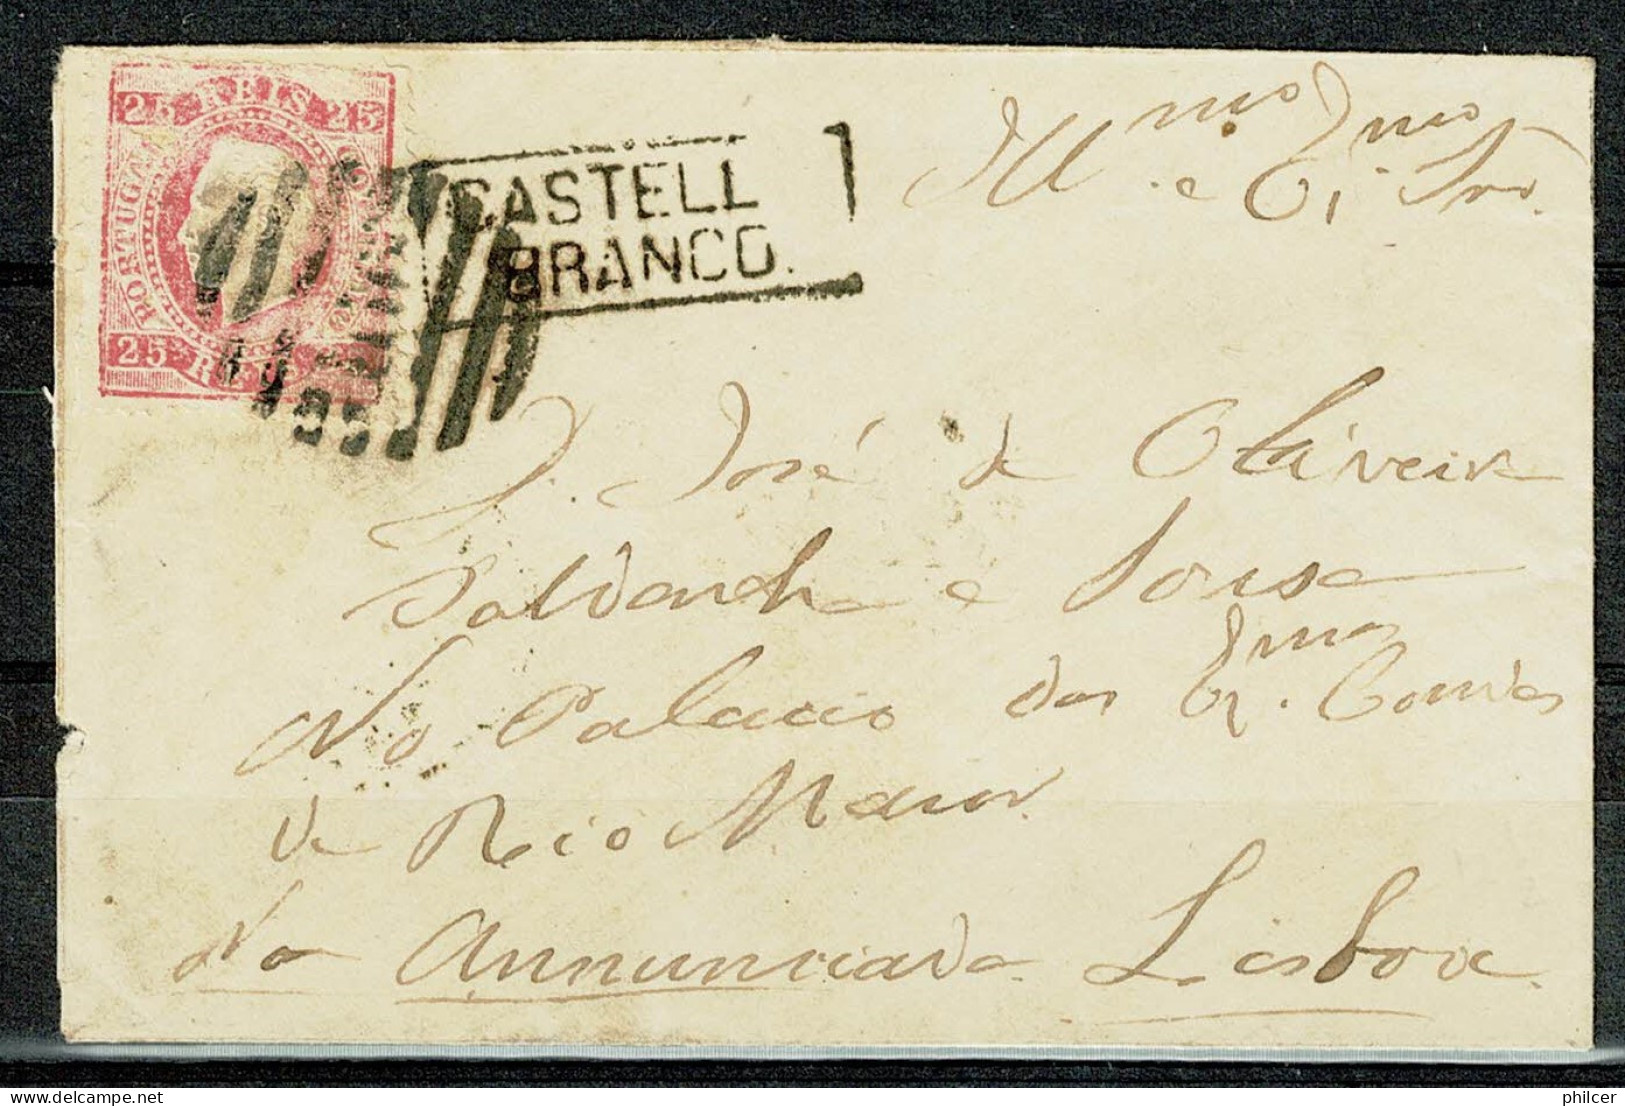 25 REIS 25
PORTUGAL
CORREIO
25 REIS
CASTELL
BRANCO.
Ill.mo e Ex.mo Snr.
D. José de Oliveira
Saldanha e Sousa
No Palacio dos Ex.mos Condes
de Rio Maior
Na Annunciada Lisboa
delcampe.net
philcer